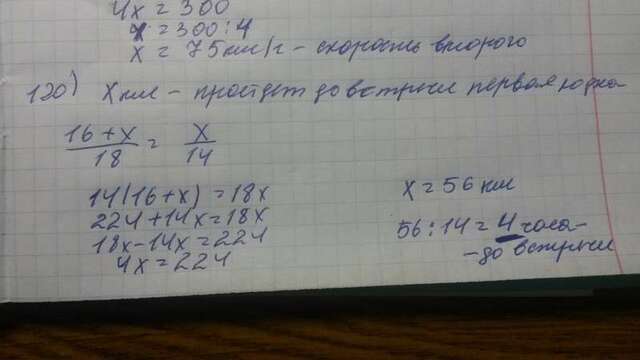 4x = 300
x = 300 : 4
x = 75 км/ч - скорость второго
120) X км - пройдет до встречи первая лодка
16 + x / 18 = x / 14
14(16+x) = 18x
224 + 14x = 18x
18x - 14x = 224
4x = 224
x = 56 км
56 : 14 = 4 часа -
- до встречи